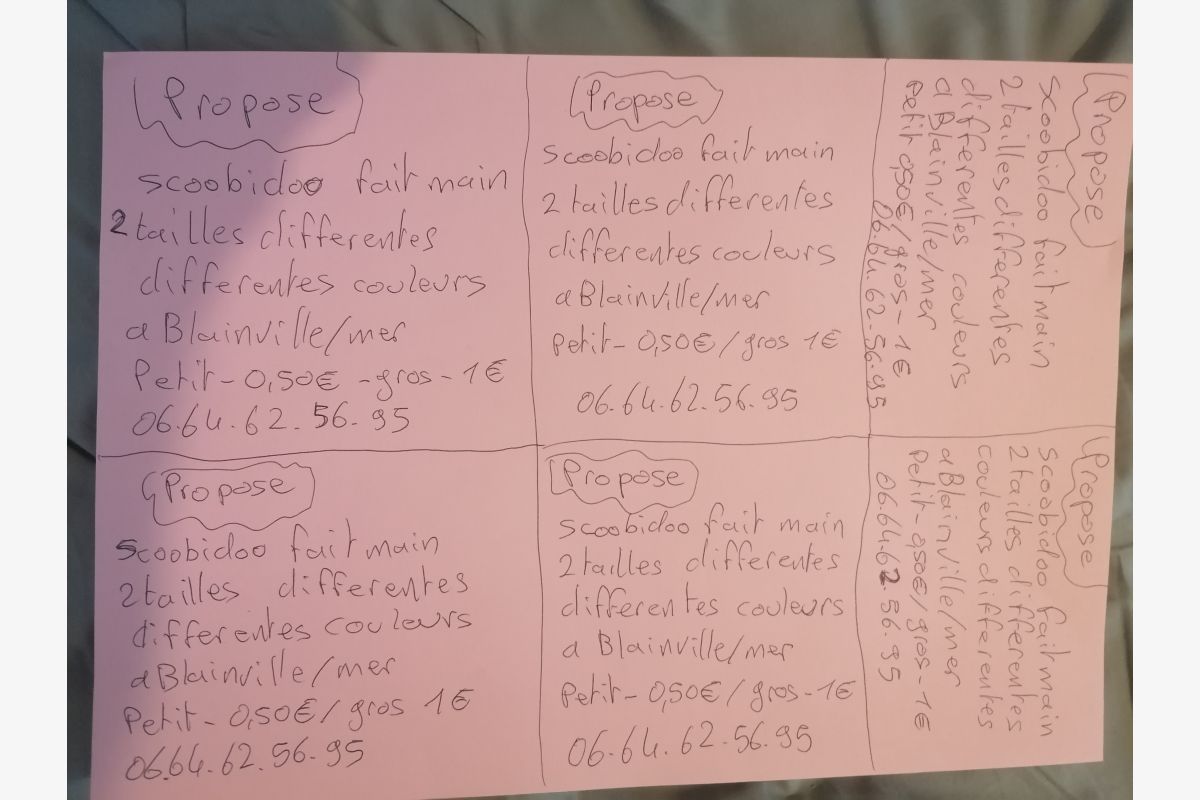 Propose
scoobidoo fait main
2 tailles differentes
differentes couleurs
a Blainville/mer
Petit - 0,50€ - gros - 1€
06.64.62.56.95
Propose
scoobidoo fait main
2 tailles differentes
differentes couleurs
a Blainville/mer
Petit - 0,50€ / gros 1€
06.64.62.56.95
Propose
scoobidoo fait main
2 tailles differentes
differentes couleurs
a Blainville/mer
Petit 0,50€/gros - 1€
06.64.62.56.95
Propose
scoobidoo fait main
2 tailles differentes
differentes couleurs
a Blainville/mer
Petit - 0,50€ / gros 1€
06.64.62.56.95
Propose
scoobidoo fait main
2 tailles differentes
differentes couleurs
a Blainville/mer
Petit - 0,50€ / gros - 1€
06.64.62.56.95
Propose
scoobidoo fait main
2 tailles differentes
couleurs differentes
a Blainville/mer
Petit - 0,50€/gros - 1€
06.64.62.56.95